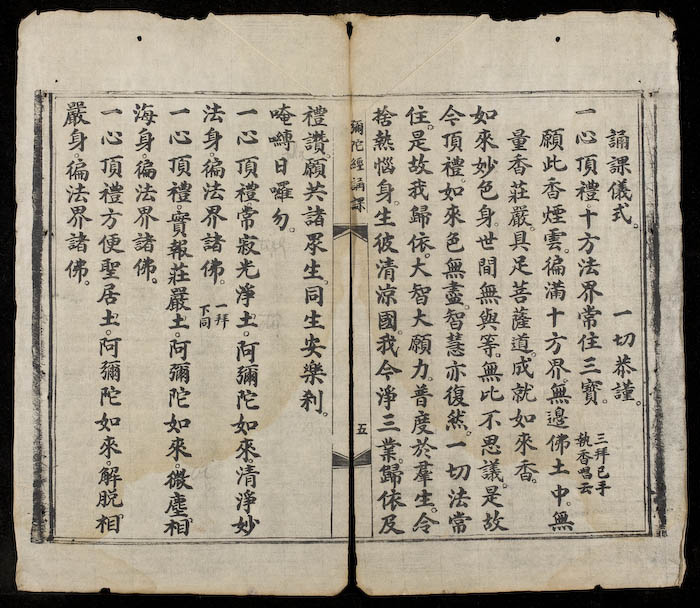 誦課儀式。 一切恭謹。
一心頂禮十方法界常住三寶。三拜已手執香唱云
願此香煙雲。徧滿十方界。無邊佛土中。無
量香莊嚴。具足菩薩道。成就如來香。
如來妙色身。世間無與等。無比不思議。是故
今頂禮。如來色無盡。智慧亦復然。一切法常
住。是故我歸依。大智大願力。普度於羣生。令
捨熱惱身。生彼清涼國。我今淨三業。歸依及
彌陀經誦課 五
禮讚。願共諸眾生。同生安樂刹。
唵嚩日囉勿。
一心頂禮常寂光淨土。阿彌陀如來。清淨妙
法身。徧法界諸佛。一拜下同
一心頂禮。實報莊嚴土。阿彌陀如來。微塵相
海身。徧法界諸佛。
一心頂禮方便聖居土。阿彌陀如來。解脱相
嚴身。徧法界諸佛。